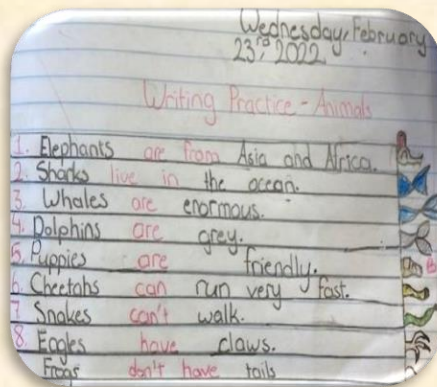 Wednesday, February
23rd, 2022
Writing Practice - Animals
1. Elephants are from Asia and Africa.
2. Sharks live in the ocean.
3. Whales are enormous.
4. Dolphins are grey.
5. Puppies are friendly.
6. Cheetahs can run very fast.
7. Snakes can't walk.
8. Eagles have claws.
Frogs don't have tails